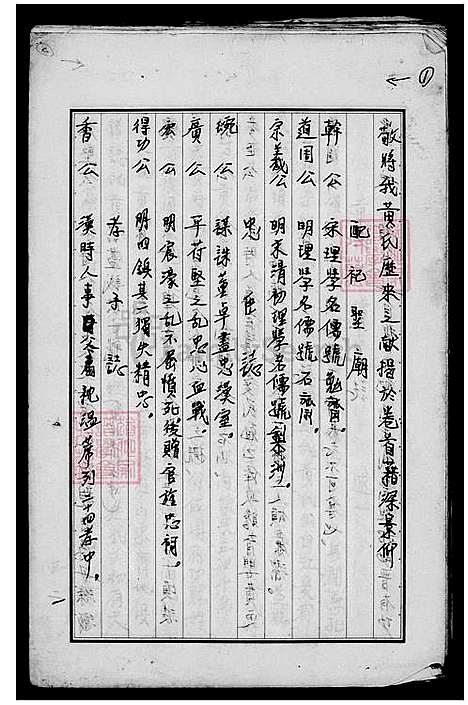 ①
敬將我黃氏歷來文獻揭於卷首藉深景仰
配祀聖廟
幹公 宋理學名儒號勉齋。
道周公 明理學名儒號石齋。
宗羲公 明末清初理學名儒號梨洲。
忠臣誌
琬公 謀誅董卓盡忠漢室。
廣公 平苻堅之亂忠心血戰。
宏公 明宸濠之亂不屈憤死後贈官旌忠祠。
得功公 明四鎮其三獨失精忠。
孝子誌
香公 漢時人事父扇枕溫蓆列二十四孝中。